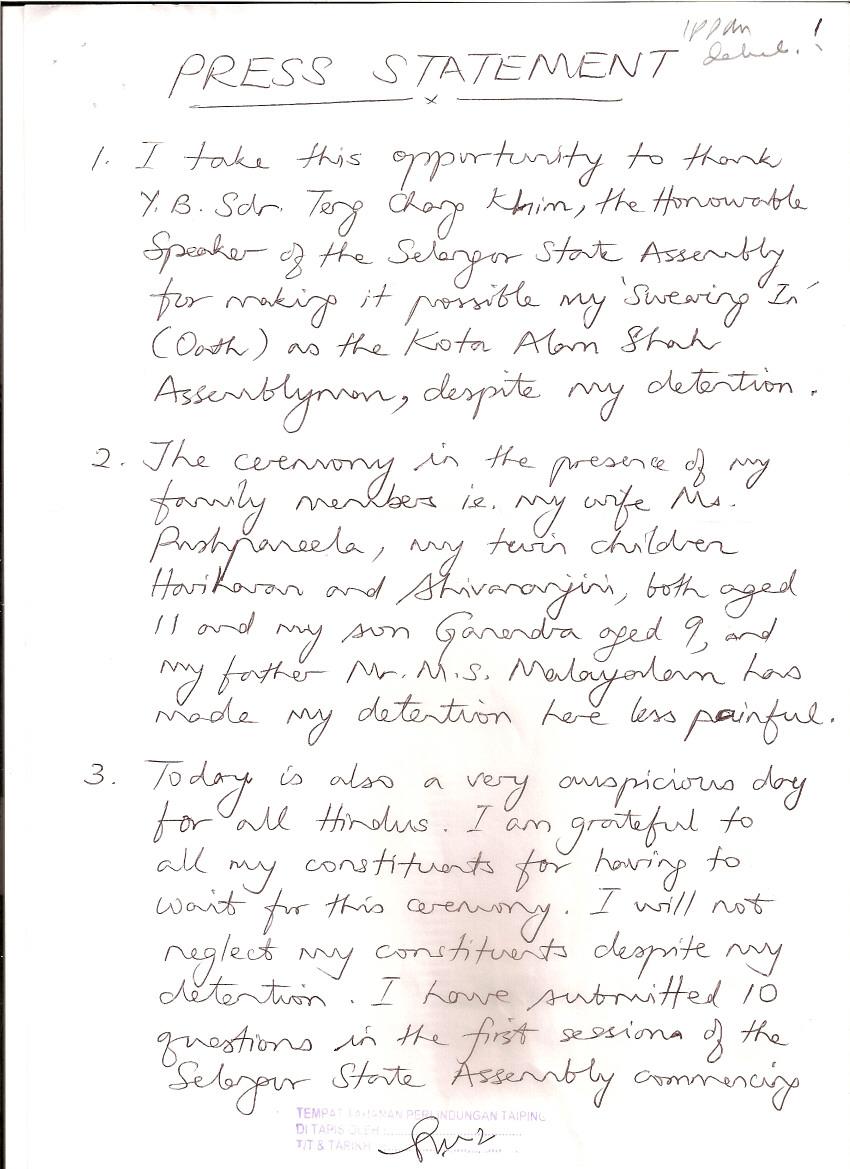 PRESS STATEMENT
x
1. I take this opportunity to thank
Y.B. Sdr. Teng Chang Khim, the Honourable
Speaker of the Selangor State Assembly
for making it possible my 'Swearing In'
(Oath) as the Kota Alam Shah
Assemblyman, despite my detention.
2. The ceremony in the presence of my
family members ie. my wife Ms.
Pushpaneela, my twin children
Hariharan and Shivaranjini, both aged
11 and my son Ganendra aged 9, and
my father Mr. M.S. Malayalam has
made my detention here less painful.
3. Today is also a very auspicious day
for all Hindus. I am grateful to
all my constituents for having to
wait for this ceremony. I will not
neglect my constituents despite my
detention. I have submitted 10
questions in the first session of the
Selangor State Assembly commencing
TEMPAT TAHANAN PERLINDUNGAN TAIPING
DI TAPIS OLEH :
T/T & TARIKH :